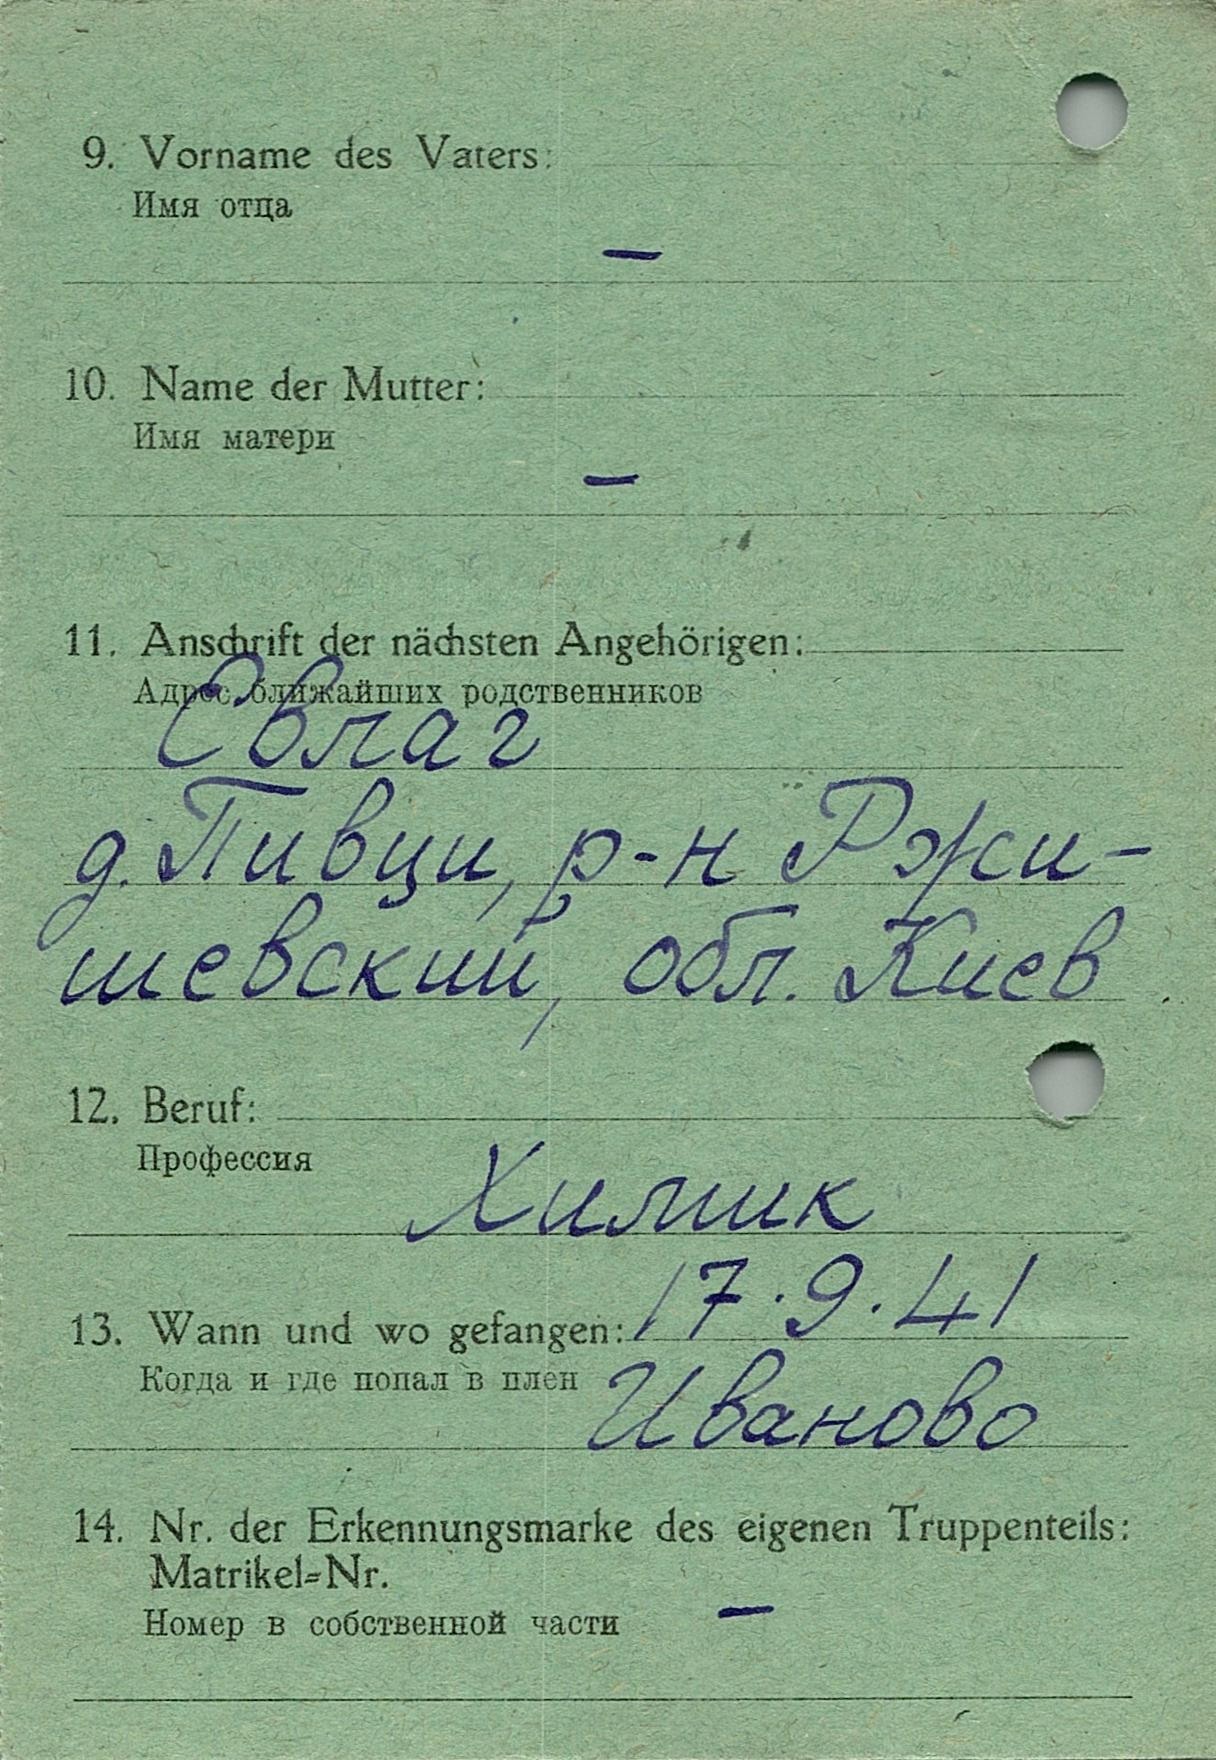 9. Vorname des Vaters:
Имя отца
—
10. Name der Mutter:
Имя матери
—
11. Anschrift der nächsten Angehörigen:
Адрес ближайших родственников
Евлаг
д. Пивци, р-н Ржи-
шевский, обл. Киев
12. Beruf:
Профессия
Химик
13. Wann und wo gefangen: 17.9.41
Когда и где попал в плен Иваново
14. Nr. der Erkennungsmarke des eigenen Truppenteils:
Matrikel=Nr.
Номер в собственной части —